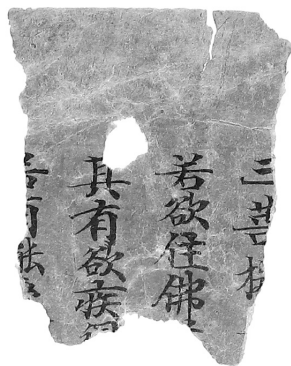 三菩提
若欲住佛
其有欲疾得
若有能